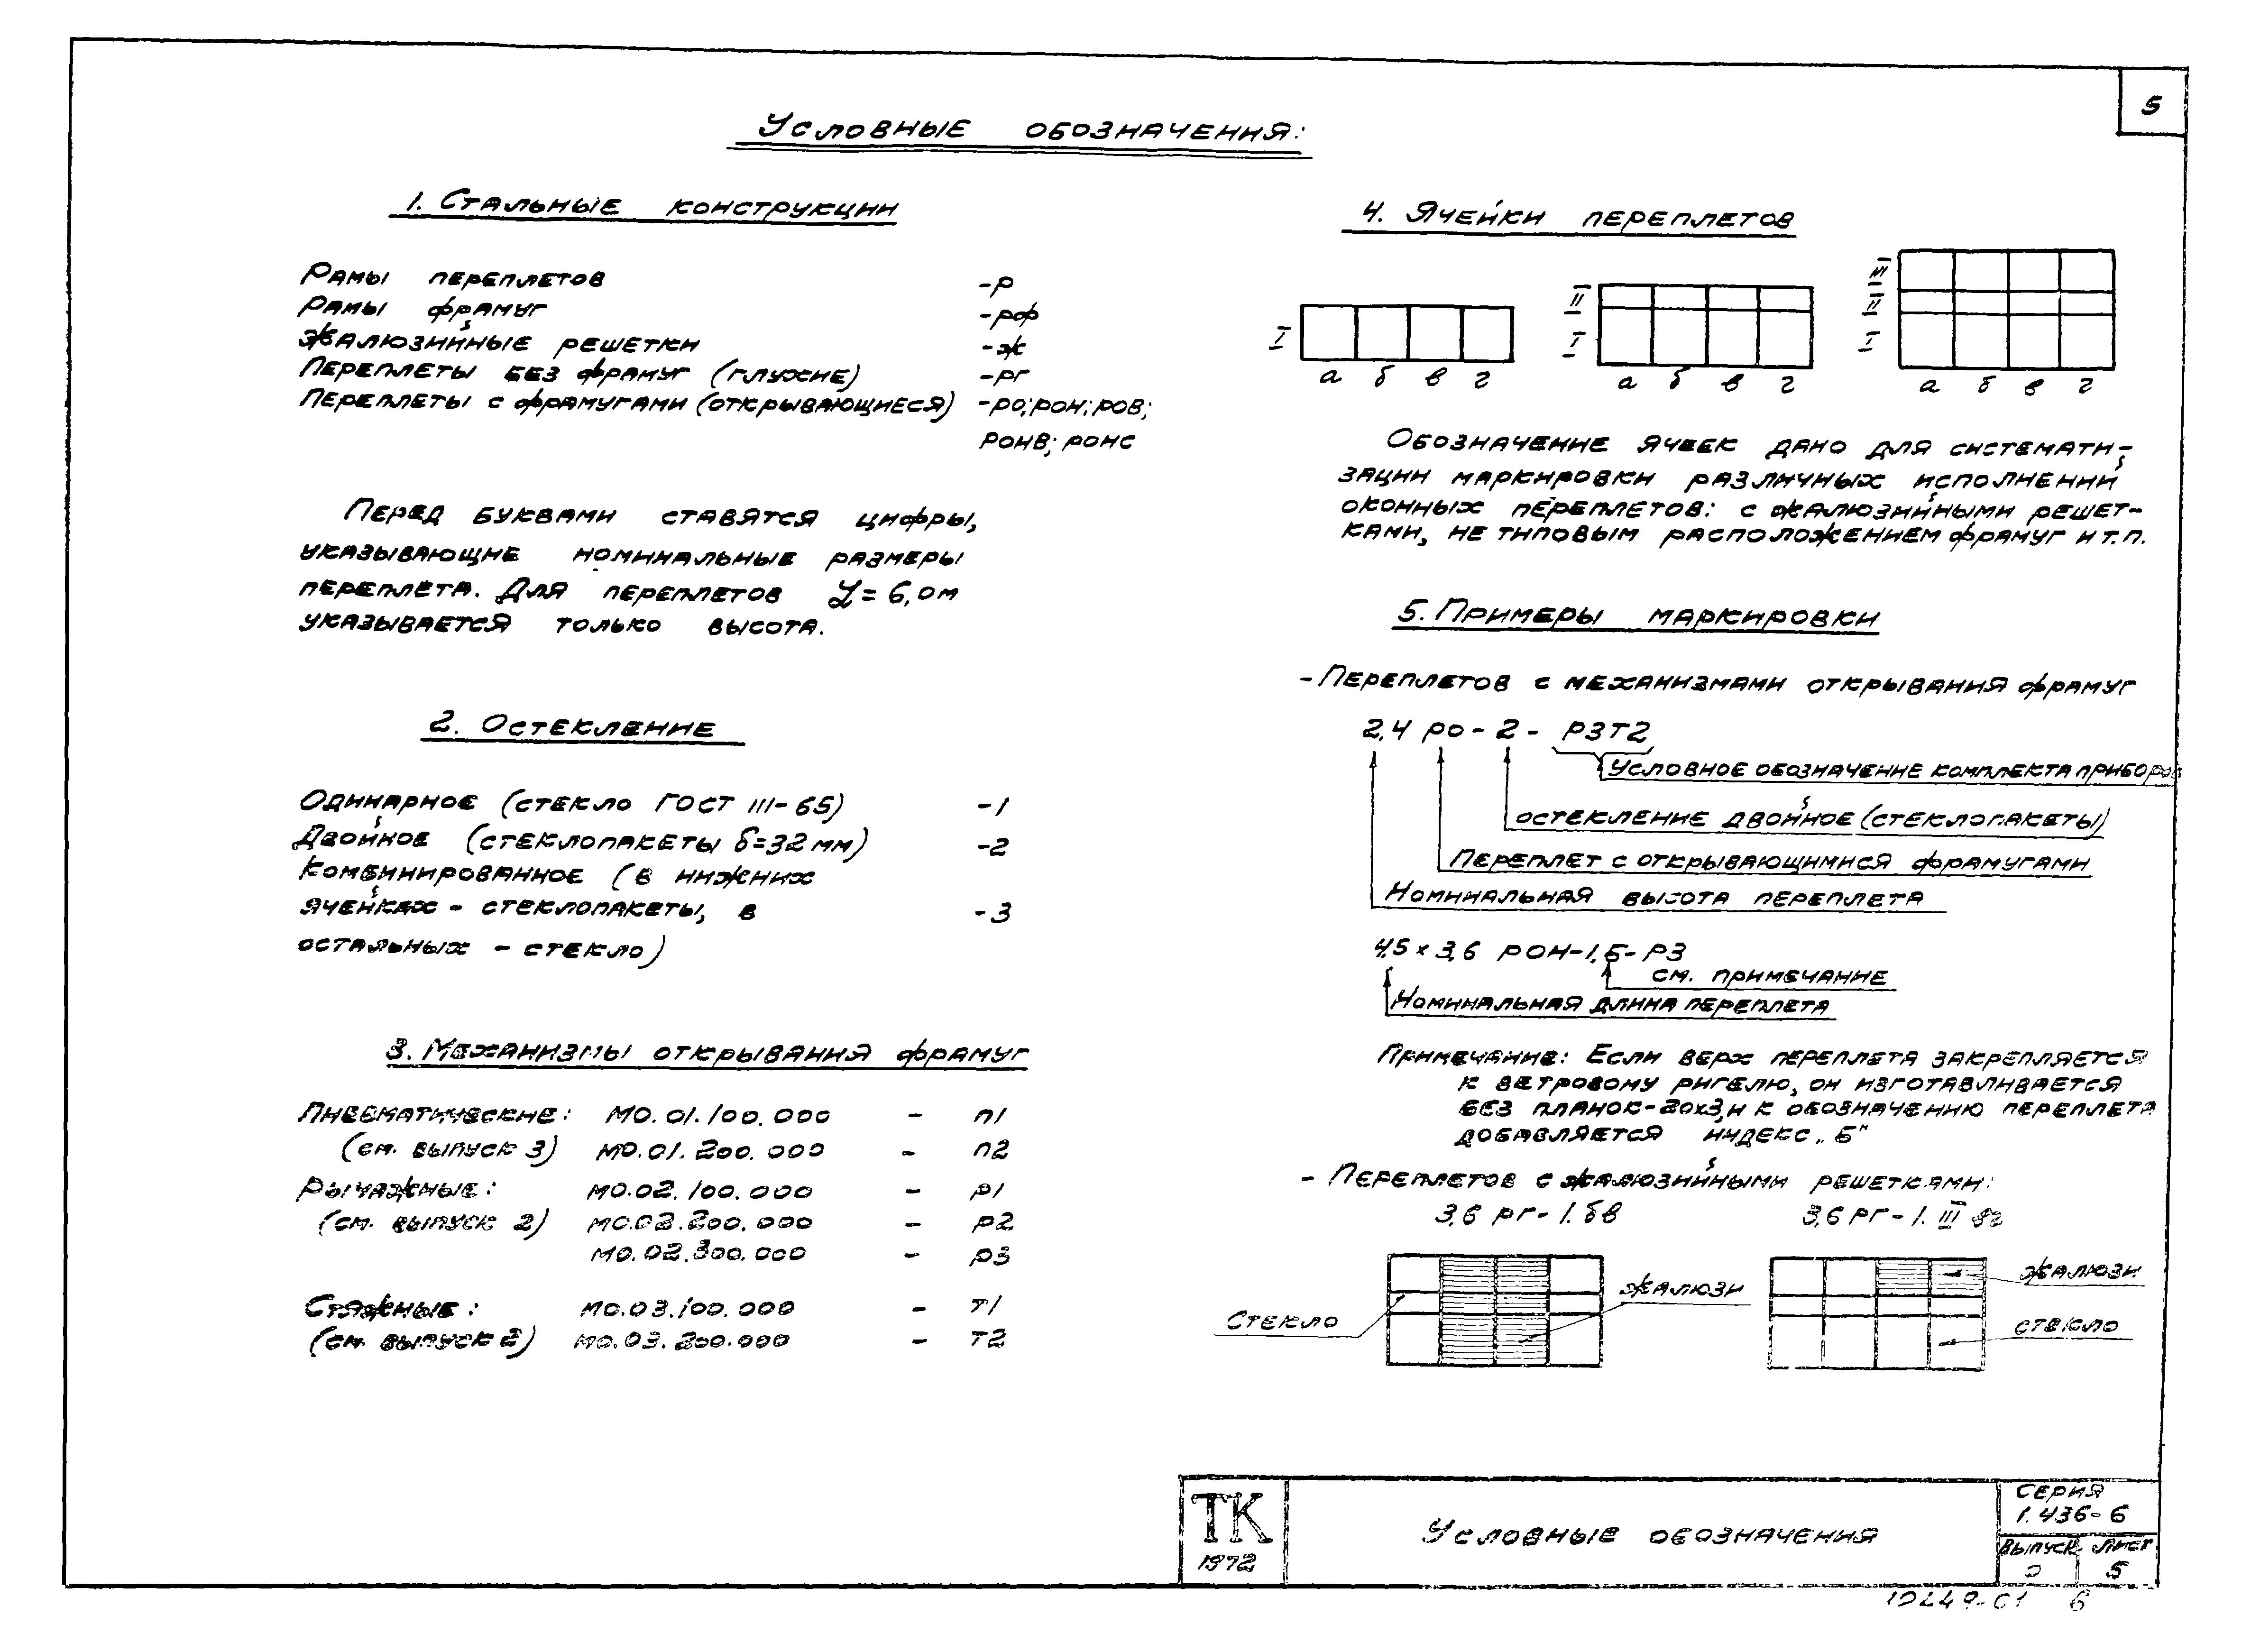 5
Условные обозначения:
1. Стальные конструкции
Рамы переплетов -Р
Рамы фрамуг -РФ
Жалюзийные решетки -Ж
Переплеты без фрамуг (глухие) -РГ
Переплеты с фрамугами (открывающиеся) -РО; РОН; РОВ;
РОНВ; РОНС
Перед буквами ставятся цифры,
указывающие номинальные размеры
переплета. Для переплетов L = 6,0 м
указывается только высота.
2. Остекление
Одинарное (стекло ГОСТ 111-65) -1
Двойное (стеклопакеты δ=32 мм) -2
Комбинированное (в нижних
ячейках - стеклопакеты, в -3
остальных - стекло)
3. Механизмы открывания фрамуг
Пневматические: МО.01.100.000 - П1
(см. выпуск 3) МО.01.200.000 - П2
Рычажные: МО.02.100.000 - Р1
(см. выпуск 2) МО.02.200.000 - Р2
МО.02.300.000 - Р3
Стяжные: МО.03.100.000 - Т1
(см. выпуск 2) МО.03.200.000 - Т2
4. Ячейки переплетов
I
а б в г
II
I
а б в г
III
II
I
а б в г
Обозначение ячеек дано для системати-
зации маркировки различных исполнений
оконных переплетов: с жалюзийными решет-
ками, не типовым расположением фрамуг и т.п.
5. Примеры маркировки
- Переплетов с механизмами открывания фрамуг
2,4 РО - 2 - Р3Т2
Условное обозначение комплекта приборов
остекление двойное (стеклопакеты)
Переплет с открывающимися фрамугами
Номинальная высота переплета
4,5 х 3,6 РОН-1,Б-Р3
см. примечание
Номинальная длина переплета
Примечание: Если верх переплета закрепляется
к ветровому ригелю, он изготавливается
без планок-20х3, и к обозначению переплета
добавляется индекс „Б"
- Переплетов с жалюзийными решетками:
3,6 РГ- 1. бв 3,6 РГ- 1. III вг
Стекло
жалюзи
жалюзи
стекло
ТК
1972
Условные обозначения
Серия
1.436-6
Выпуск Лист
0 5
12249-01 6